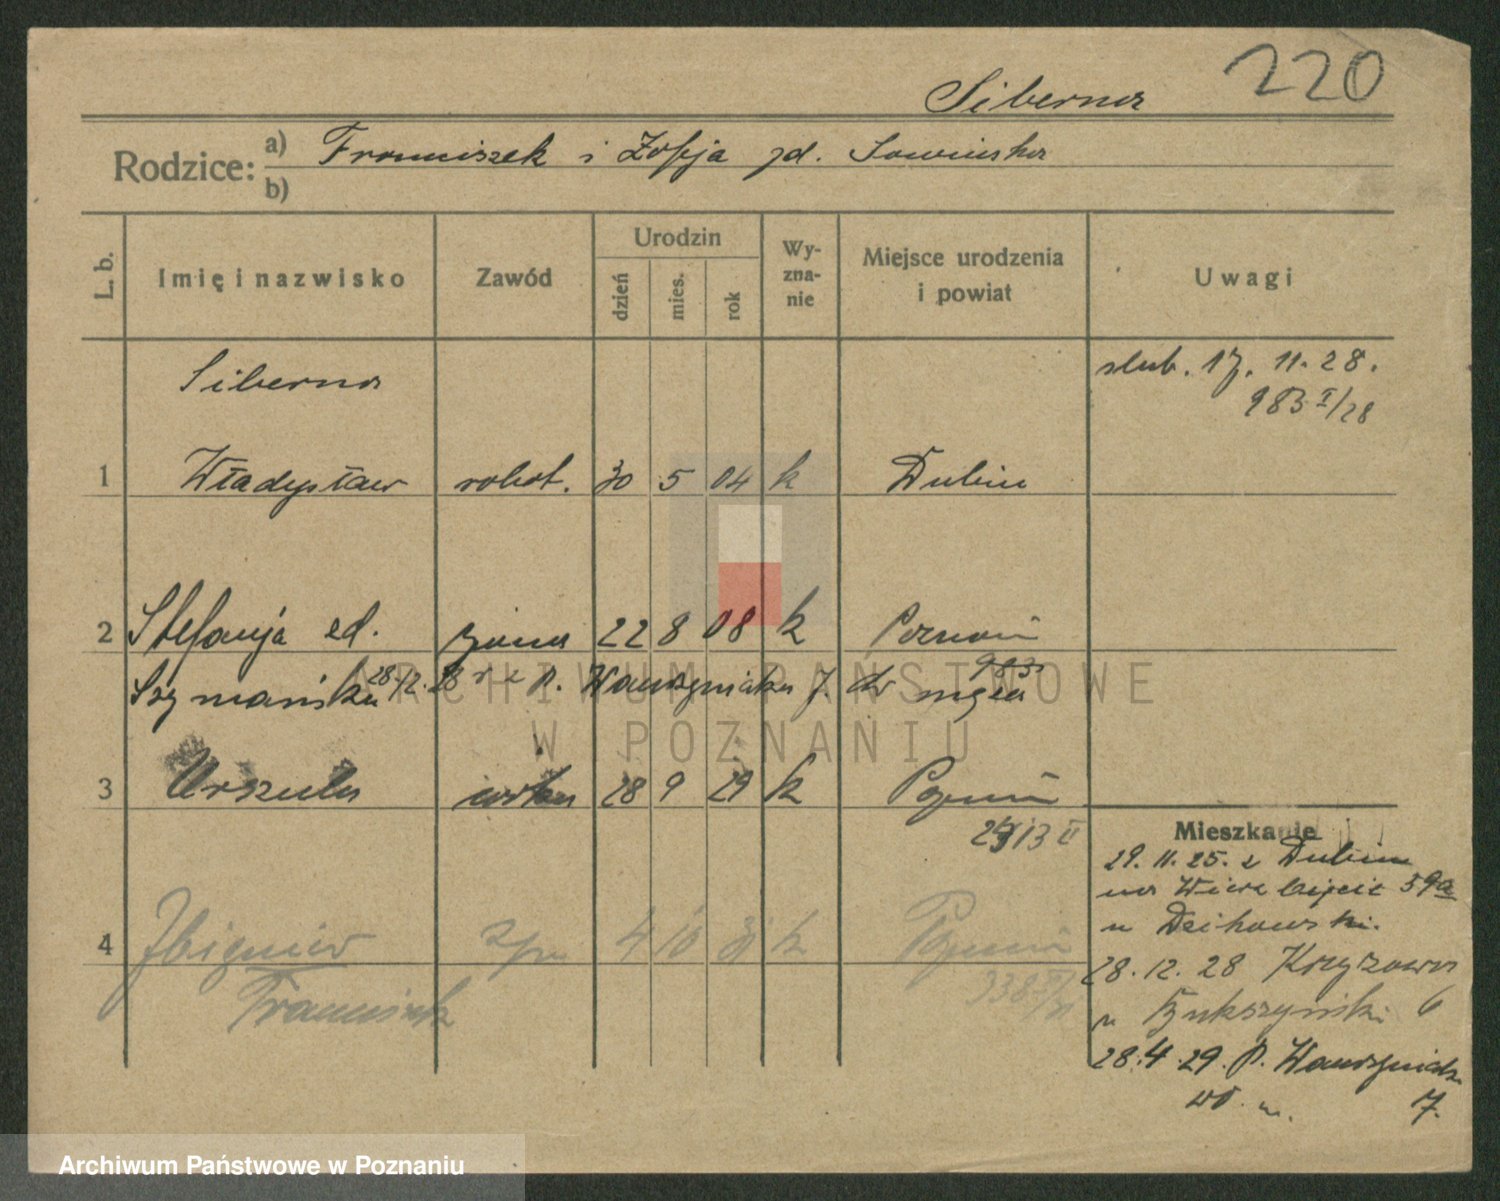 220
Siberna
Rodzice:
a) Franciszek i Zofja zd. Sowińska
b)
L. b.
Imię i nazwisko
Zawód
Urodzin
dzień
mies.
rok
Wy-
zna-
nie
Miejsce urodzenia
i powiat
Uwagi
Siberna
ślub. 17. 11. 28.
983 I/28
1 Władysław robot. 30 5 04 k Dubin
2 Stefanja ed. żona 22 8 08 k Poznań
983
Szymańska 28.12.28 P. Wawrzyniaka 7. do męża
3 Urszula córka 28 9 29 k Poznań
13 II
Mieszkanie
29. 11. 25. z Dubin
na Wierzbięcic 59a
u Dzikowski.
4 Zbigniew 4 10 31 k Poznań
28. 12. 28 Krzyżowa
Franciszek
u 6
28. 4. 29. P. Wawrzyniaka
7.
ARCHIWUM PAŃSTWOWE
W POZNANIU
Archiwum Państwowe w Poznaniu